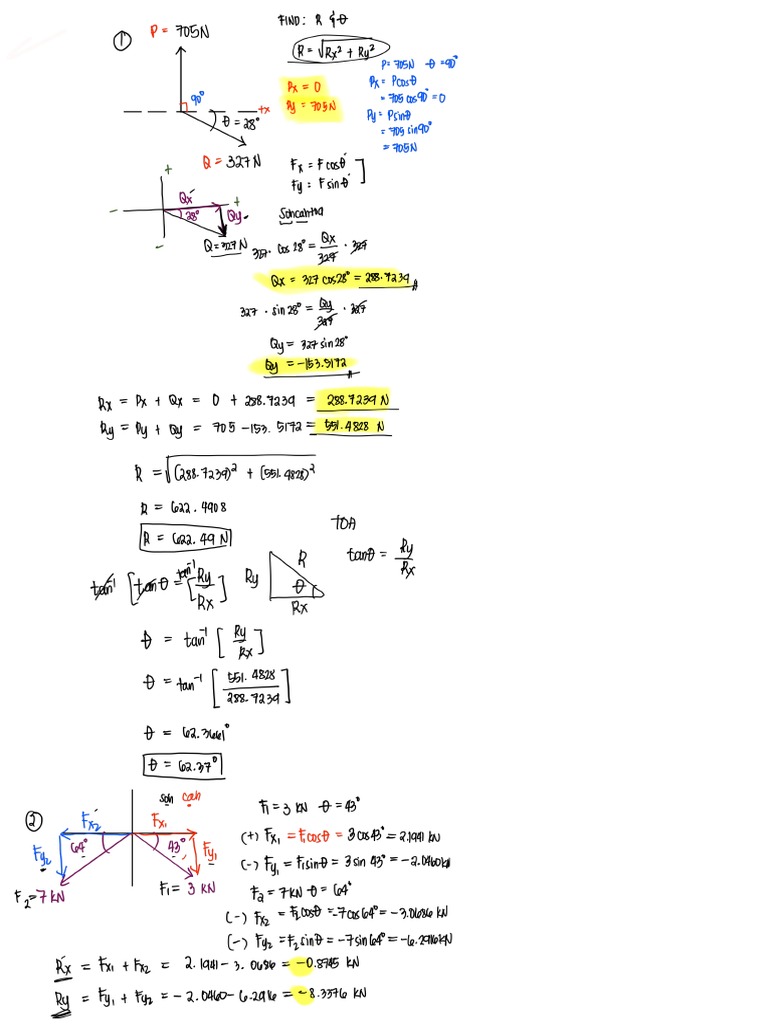 ① P = 705N
FIND: R & θ
R = √Rx² + Ry²
90°
+x
θ = 28°
Q = 327N
Px = 0
Py = 705N
P = 705N θ = 90°
Px = Pcosθ
= 705 cos90° = 0
Py = Psinθ
= 705 sin90°
= 705N
Fx = Fcosθ
Fy = Fsinθ
+
Qx
- +
28° Qy
-
Q = 327N
Sohcahtoa
327 · cos 28° = Qx/327 · 327
Qx = 327 cos28° = 288.7239
327 · sin 28° = Qy/327 · 327
Qy = 327 sin 28°
Qy = -153.5172
Rx = Px + Qx = 0 + 288.7239 = 288.7239 N
Ry = Py + Qy = 705 - 153.5172 = 551.4828 N
R = √(288.7239)² + (551.4828)²
R = 622.4908
R = 622.49 N
TOA
tanθ = Ry/Rx
tan⁻¹ [tanθ = tan⁻¹ [Ry/Rx]
Ry R
θ
Rx
θ = tan⁻¹ [Ry/Rx]
θ = tan⁻¹ [551.4828/288.7239]
θ = 62.3661°
θ = 62.37°
② soh cah
Fx₂ Fx₁
64° 43°
Fy₂ Fy₁
F₂ = 7 kN F₁ = 3 kN
F₁ = 3 kN θ = 43°
(+) Fx₁ = F₁cosθ = 3 cos43° = 2.1941 kN
(-) Fy₁ = F₁sinθ = 3 sin 43° = -2.0460 kN
F₂ = 7 kN θ = 64°
(-) Fx₂ = F₂cosθ = -7cos64° = -3.0686 kN
(-) Fy₂ = F₂sinθ = -7sin64° = -6.2916 kN
Rx = Fx₁ + Fx₂ = 2.1941 - 3.0686 = -0.8745 kN
Ry = Fy₁ + Fy₂ = -2.0460 - 6.2916 = -8.3376 kN